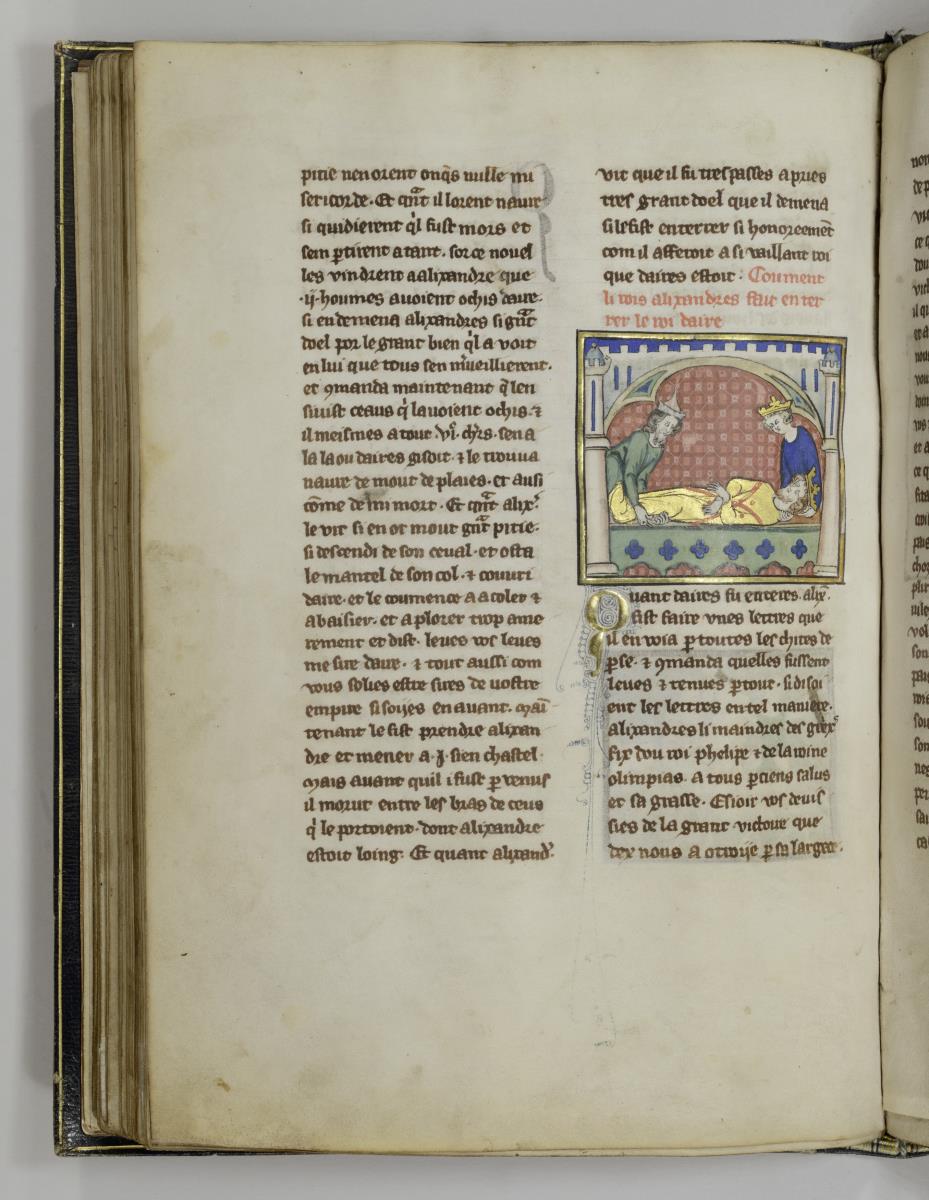 pitie nen orent onq̃s nulle mi
sericorde. Et qñt il lorent naure
si quidierent q̓l fust mors et
sem ꝑtirent atant. sor ce nouel
les vindrent a alixandre que
.ij. houmes auoient ochis daire.
si en demena alixandres si gñt
doel por le grant bien q̓l a voit
en lui que tous sen m̓ueillierent.
et ꝯmanda maintenant q̃ len
siuist ceaus q̓ lauoient ochis. ⁊
il meismes a tout .vj̓. chr̃s. sen a
la la ou daires gisoit. ⁊ le trouua
naure de mout de plaies. et ausi
cõme demi mort. Et qñt alix̓.
le vit si en ot mout gñt pitie.
si descendi de son ceual. et osta
le mantel de son col. ⁊ couuri
daire. et le coumence a acoler ⁊
a baisier. et a plorer trop ame
rement et dist. leues vos leues
me sire daire. ⁊ tout aussi com
vous solies estre sires de uostre
empire si soijes en auant. Mai̅
tenant le fist prendre alixan
dre et mener a .j. sien chastel.
Mais auant quil i fust ꝑ venus
il morut entre les bras de ceus
q̓ le portoient. dont alixandre
estoit loing. Et quant alixand̓.
vit que il fu trespasses apries
tres grant doel que il demena
si le fist enterrer si honoreemẽt
com il afferoit a si vaillant roi
que daires estoit. Coument
li rois alixandres fait en ter
rer le roi daire
Quant daires fu enteres. alix̓.
fist faire vnes lettres que
il en voia ꝑ toutes les chites de
ꝑse. ⁊ ꝯmanda quelles fussent
leues ⁊ tenues ꝑtout. si disoi
ent les lettres en tel maniere.
alixandres li maindres des griex̓
fix dou roi phelipe ⁊ de la roine
olimpias. A tous ꝑciens salus
et sa grasse. Esioir vos deuis
sies de la grant victoire que
dex nous a otroije ꝑ sa largece.